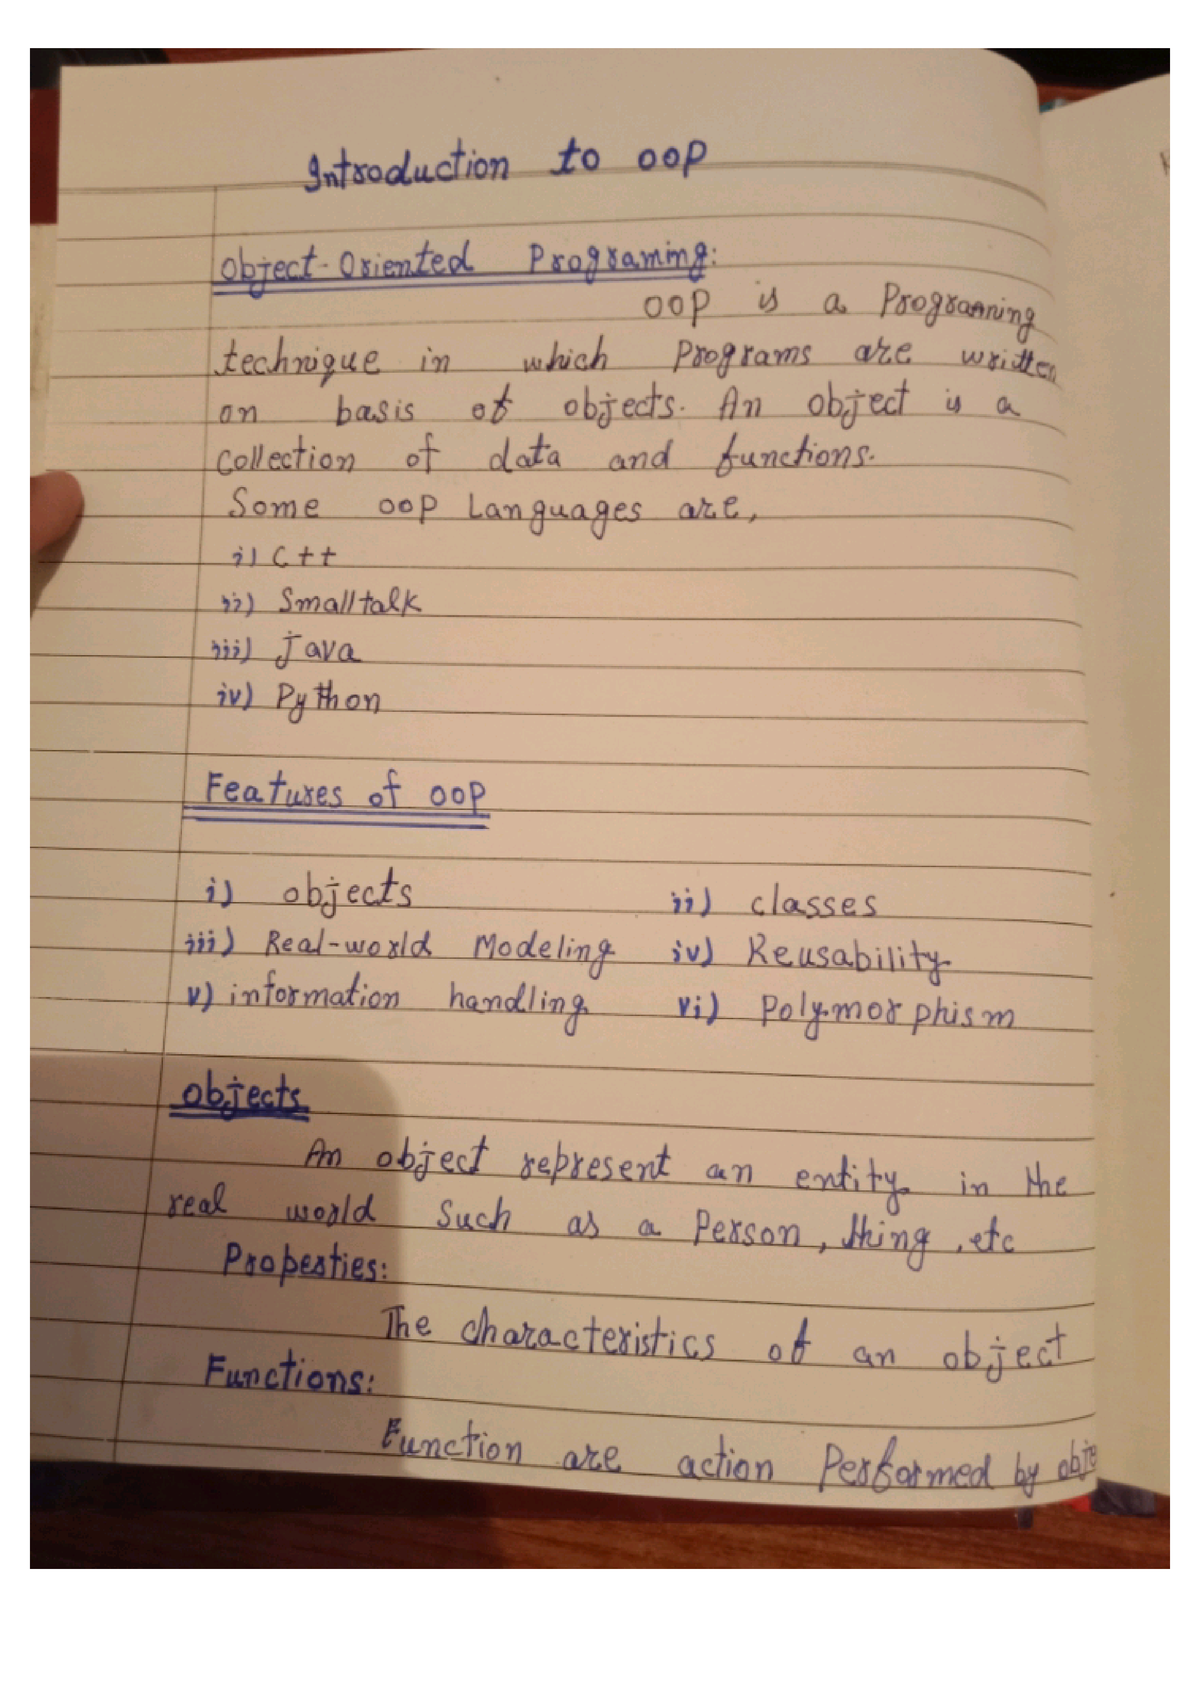 Introduction to OOP
Object-Oriented Programing:
OOP is a Programming
technique in which Programs are written
on basis of objects. An object is a
collection of data and functions.
Some OOP Languages are,
i) C++
ii) Smalltalk
iii) Java
iv) Python
Features of OOP
i) objects ii) classes
iii) Real-world Modeling iv) Reusability
v) information handling vi) Polymorphism
Objects
An object represent an entity in the
real world such as a Person, thing, etc
Properties:
The characteristics of an object
Functions:
Function are action Performed by obje